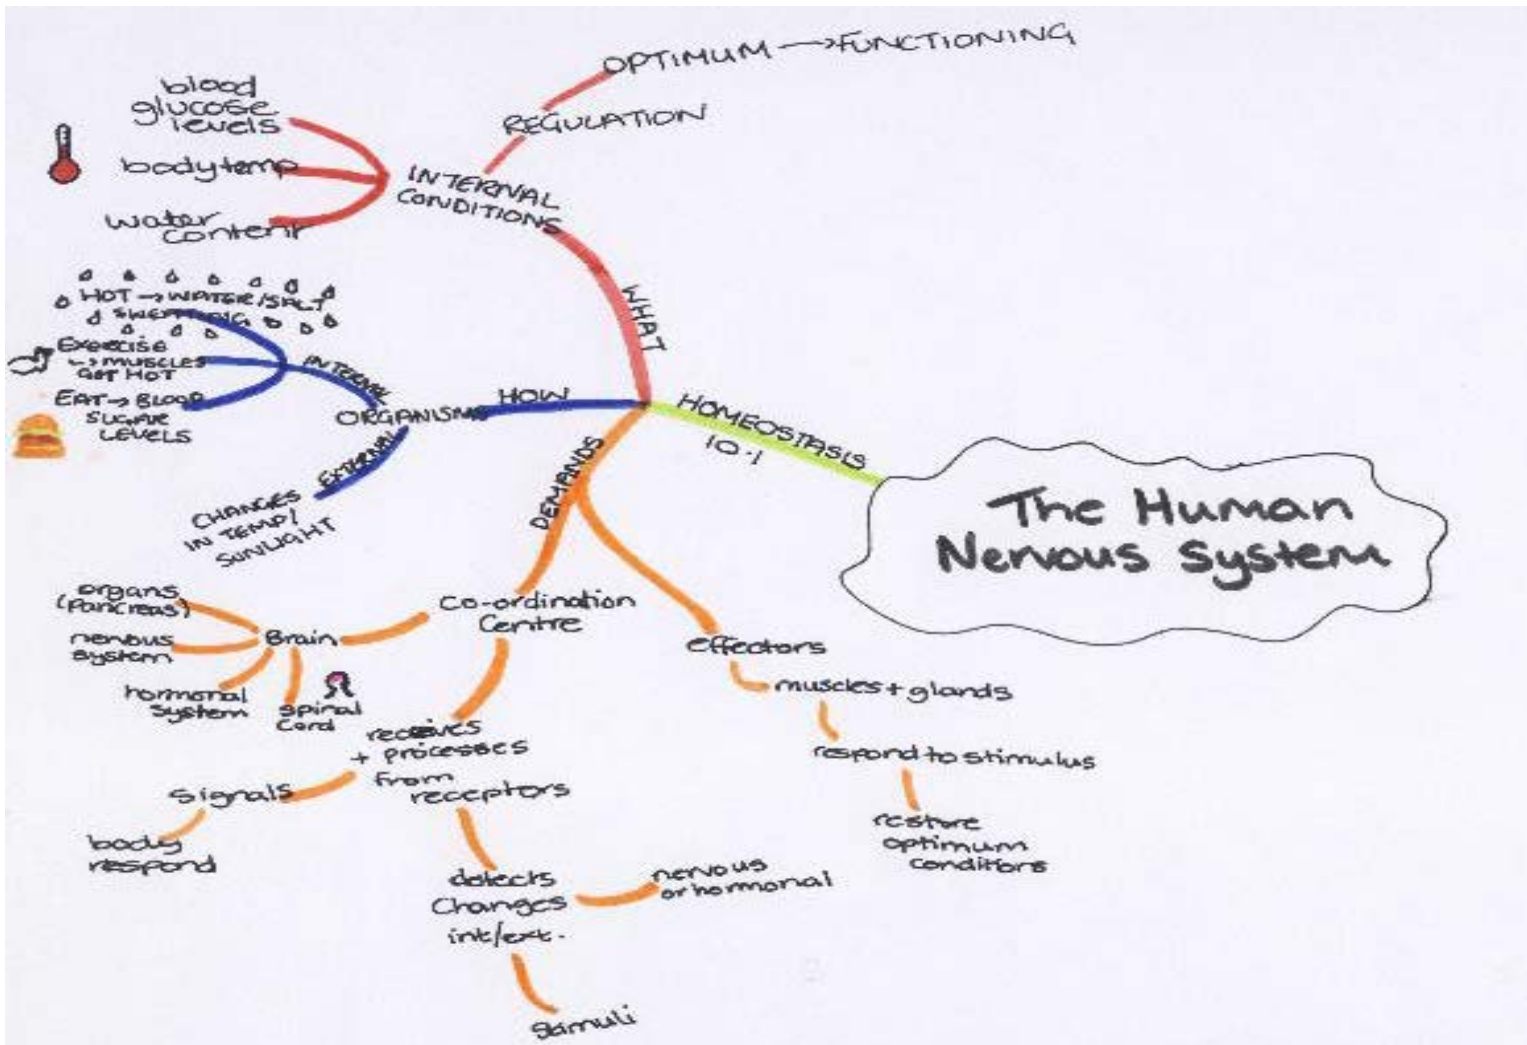 The Human
Nervous System
HOMEOSTASIS
10.1
WHAT
INTERNAL
CONDITIONS
REGULATION
OPTIMUM → FUNCTIONING
blood
glucose
levels
body temp
water
content
HOW
ORGANISMS
INTERNAL
HOT → WATER/SALT
SWEATING
Exercise
↳ MUSCLES
GET HOT
EAT → BLOOD
SUGAR
LEVELS
EXTERNAL
CHANGES
IN TEMP/
SUNLIGHT
DEMANDS
Co-ordination
Centre
Brain
organs
(pancreas)
nervous
system
hormonal
system
spinal
Cord
receives
+ processes
from
receptors
signals
body
respond
detects
Changes
int/ext.
nervous
or hormonal
stimuli
effectors
muscles + glands
respond to stimulus
restore
optimum
conditions